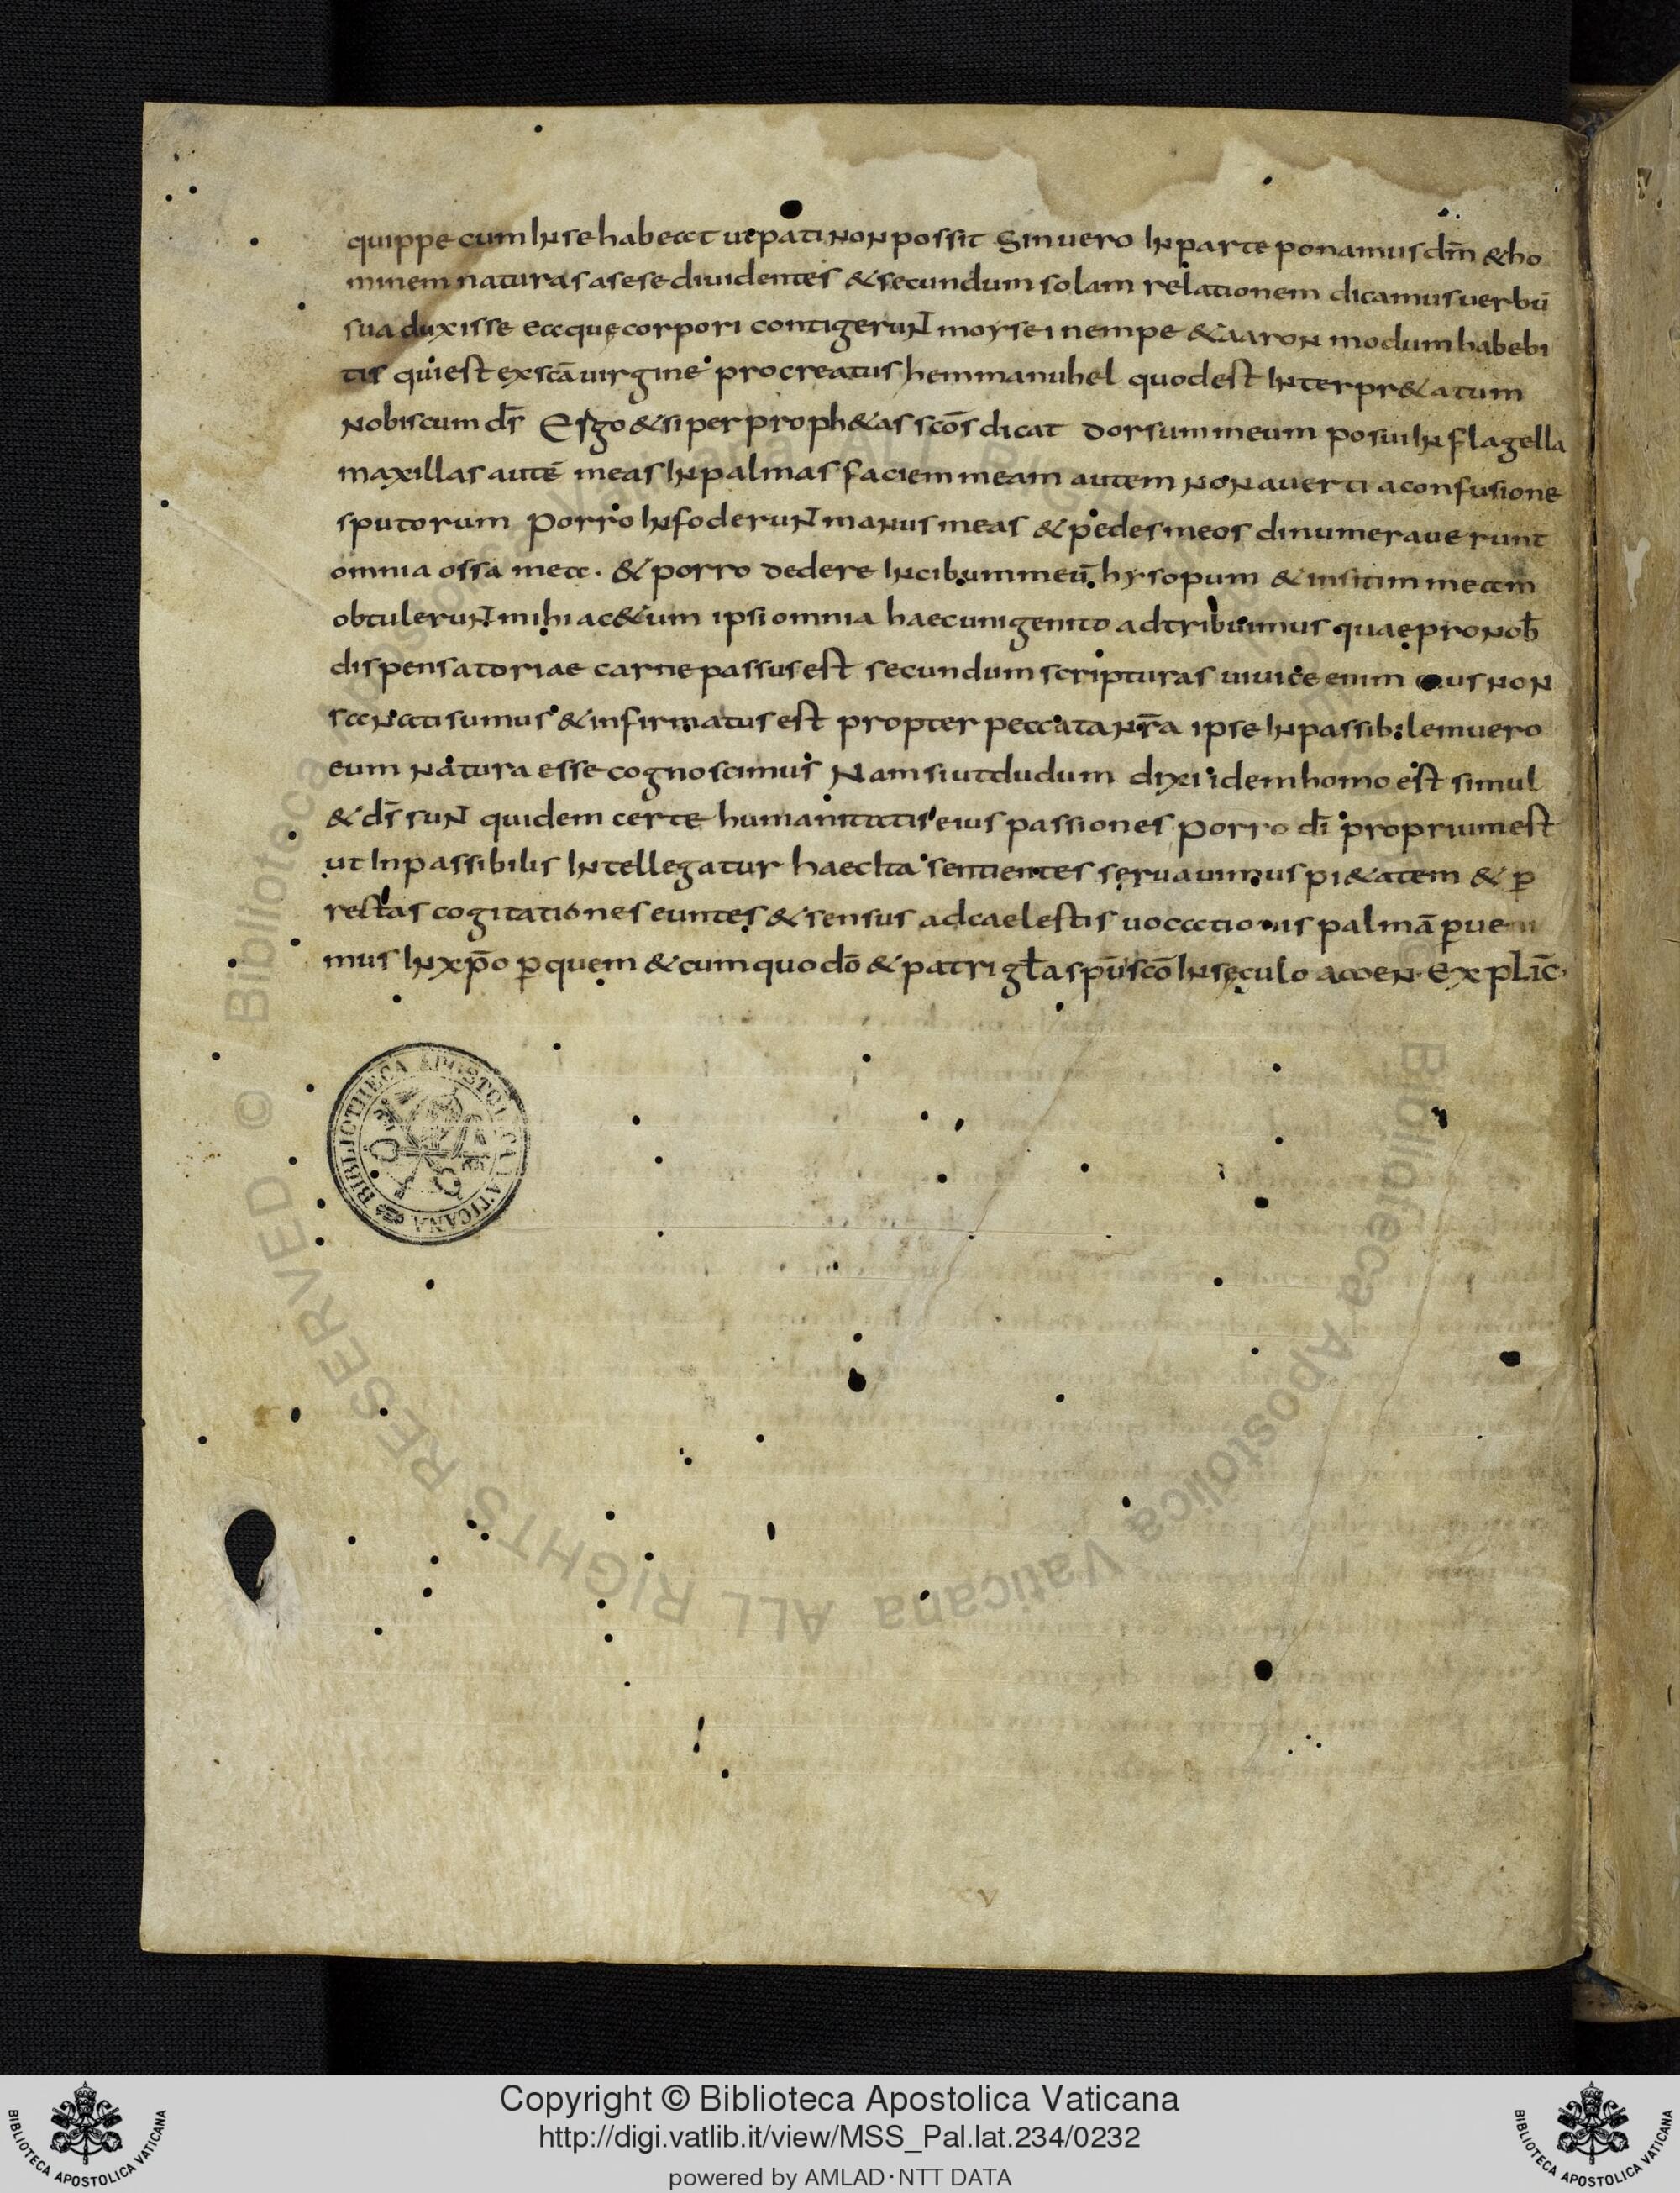 quippe cum In se habeat ut pati non possit Sin vero In parte ponamus dm̄ & ho
minem naturas a sese dividentes & secundum solam relationem dicamus verbū
sua duxisse eaque corpori contigerunt moysei nempe & aaron modum habebi
tis qui est ex scā virgine procreatus hemmanuhel quod est Interpr&atum
nobiscum ds̄ Ergo & si per proph&as scōs dicat dorsum meum posui In flagella
maxillas autē meas In palmas faciem meam autem non averti a confusione
sputorum Porro Infoderunt manus meas & pedes meos dinumeraverunt
omnia ossa mea. & porro dedere In cibum meū hysopum & in sitim meam
obtulerunt mihi ac&um ipsi omnia haec unigenito adtribuimus quae pro nob̄
dispensatoriae carne passus est secundum scripturas uiuice enim eius non
sanati sumus & infirmatus est propter peccata nr̄a ipse Inpassibilem vero
eum natura esse cognoscimus Nam si ut dudum dixi idem homo est simul
& ds̄ sunt quidem certe humanitatis eius passiones Porro dī proprium est
ut Inpassibilis Intellegatur haec Ita sentientes servavimus pi&atem & p̄
rectas cogitationes euntes & sensus ad caelestis vocationis palmā p̄veni
mus In xp̄o p̄ quem & cum quo dō & patri gl̄a sp̄u scō In seculo amen. Explic̄.
BIBLIOTHECA APOSTOLICA VATICANA
© Biblioteca Apostolica Vaticana ALL RIGHTS RESERVED
Copyright © Biblioteca Apostolica Vaticana
http://digi.vatlib.it/view/MSS_Pal.lat.234/0232
powered by AMLAD·NTT DATA
BIBLIOTECA APOSTOLICA VATICANA
BIBLIOTECA APOSTOLICA VATICANA